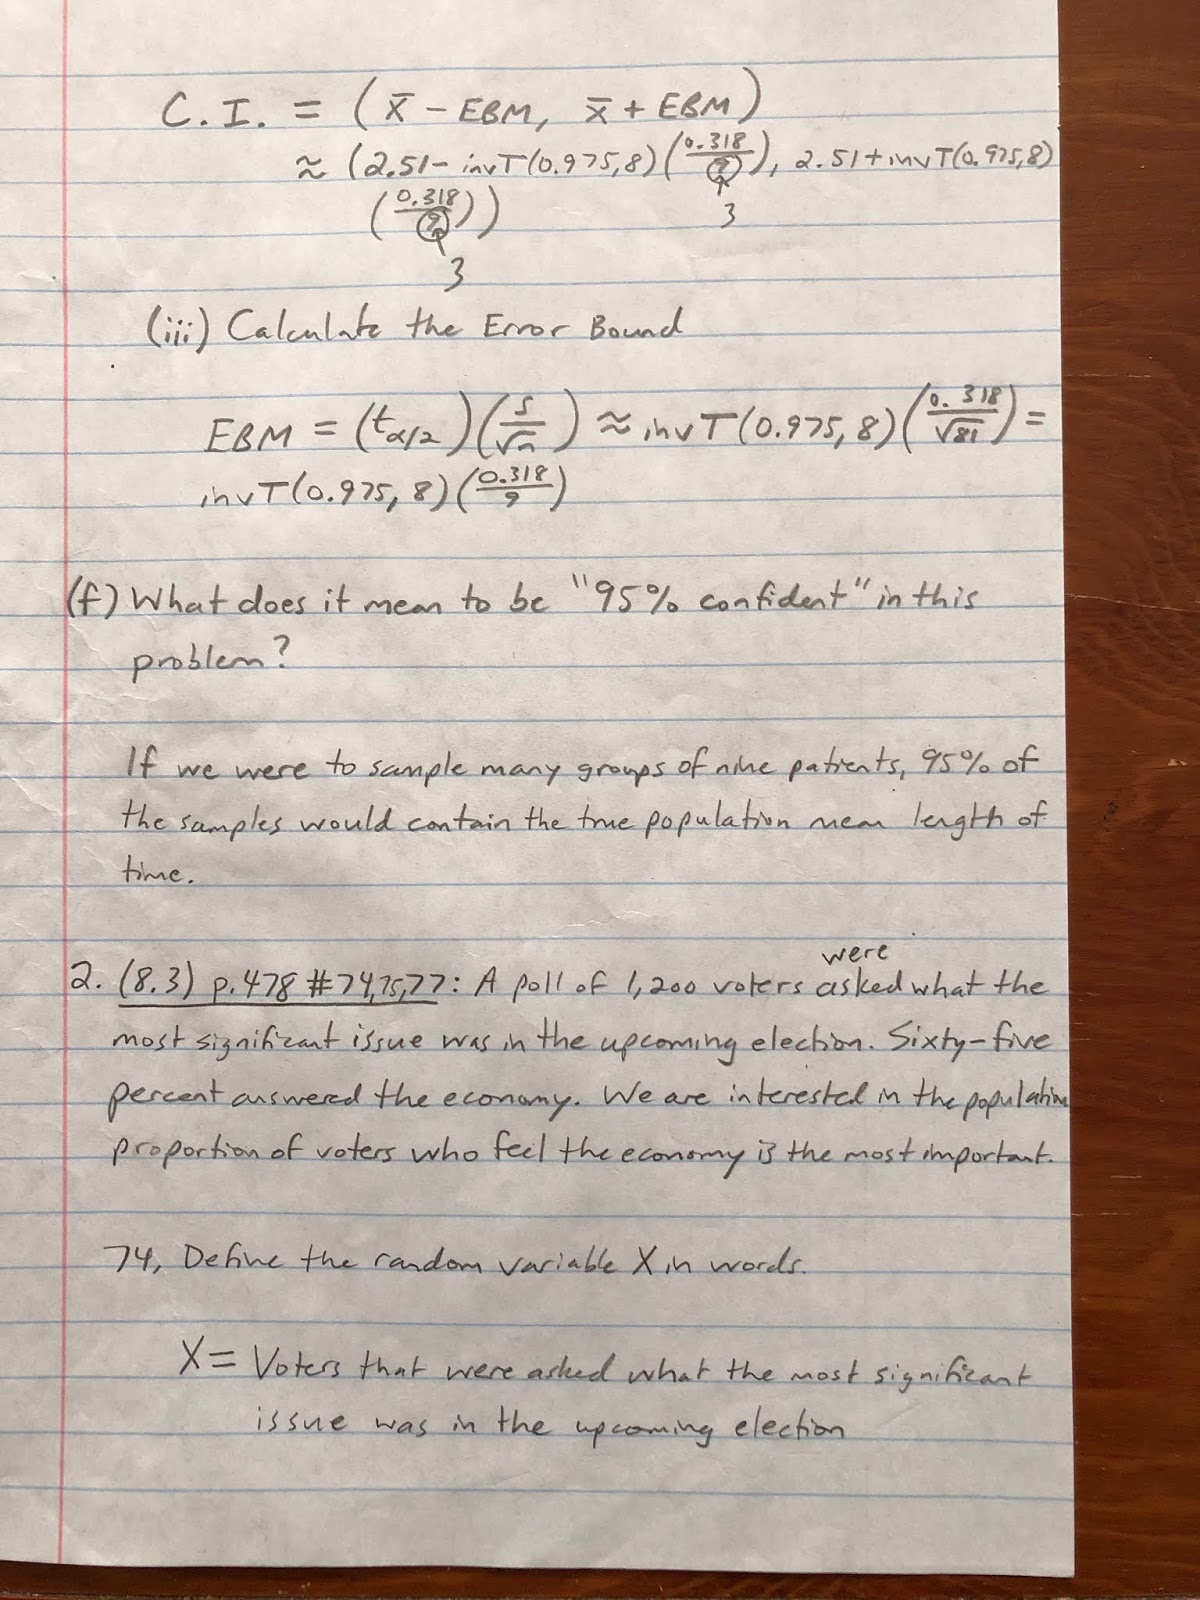 C. I. = (x̄ - EBM, x̄ + EBM)
≈ (2.51 - invT(0.975, 8)(0.318/9), 2.51 + invT(0.975, 8)
3
(0.318/9))
3
(iii) Calculate the Error Bound
EBM = (t_α/2)(s/√n) ≈ invT(0.975, 8)(0.318/√81) =
invT(0.975, 8)(0.318/9)
(f) What does it mean to be "95% confident" in this
problem?
If we were to sample many groups of nine patients, 95% of
the samples would contain the true population mean length of
time.
were
2. (8.3) p.478 #74,75,77: A poll of 1,200 voters asked what the
most significant issue was in the upcoming election. Sixty-five
percent answered the economy. We are interested in the population
proportion of voters who feel the economy is the most important.
74, Define the random variable X in words.
X = Voters that were asked what the most significant
issue was in the upcoming election